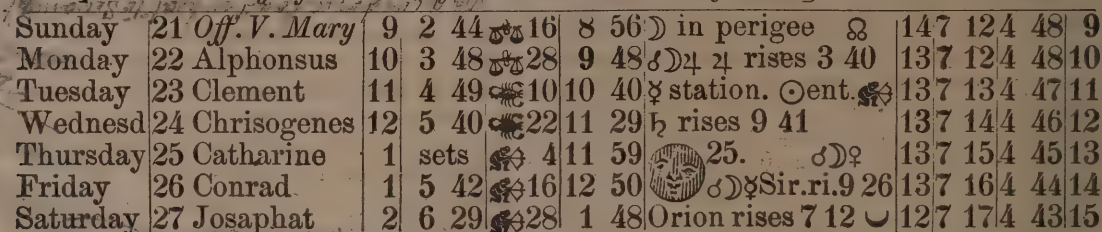 Sunday 21 Off. V. Mary 9 2 44 ♎16 8 56 ☽ in perigee ☊ 14 7 12 4 48 9
Monday 22 Alphonsus 10 3 48 ♎28 9 48 ☌☽♃ ♃ rises 3 40 13 7 12 4 48 10
Tuesday 23 Clement 11 4 49 ♏10 10 40 ☿ station. ☉ent.♐ 13 7 13 4 47 11
Wednesd 24 Chrisogenes 12 5 40 ♏22 11 29 ♄ rises 9 41 13 7 14 4 46 12
Thursday 25 Catharine 1 sets ♐ 4 11 59 25. ☌☽♀ 13 7 15 4 45 13
Friday 26 Conrad 1 5 42 ♐16 12 50 ☌☽☿Sir.ri.9 26 13 7 16 4 44 14
Saturday 27 Josaphat 2 6 29 ♐28 1 48 Orion rises 7 12 12 7 17 4 43 15